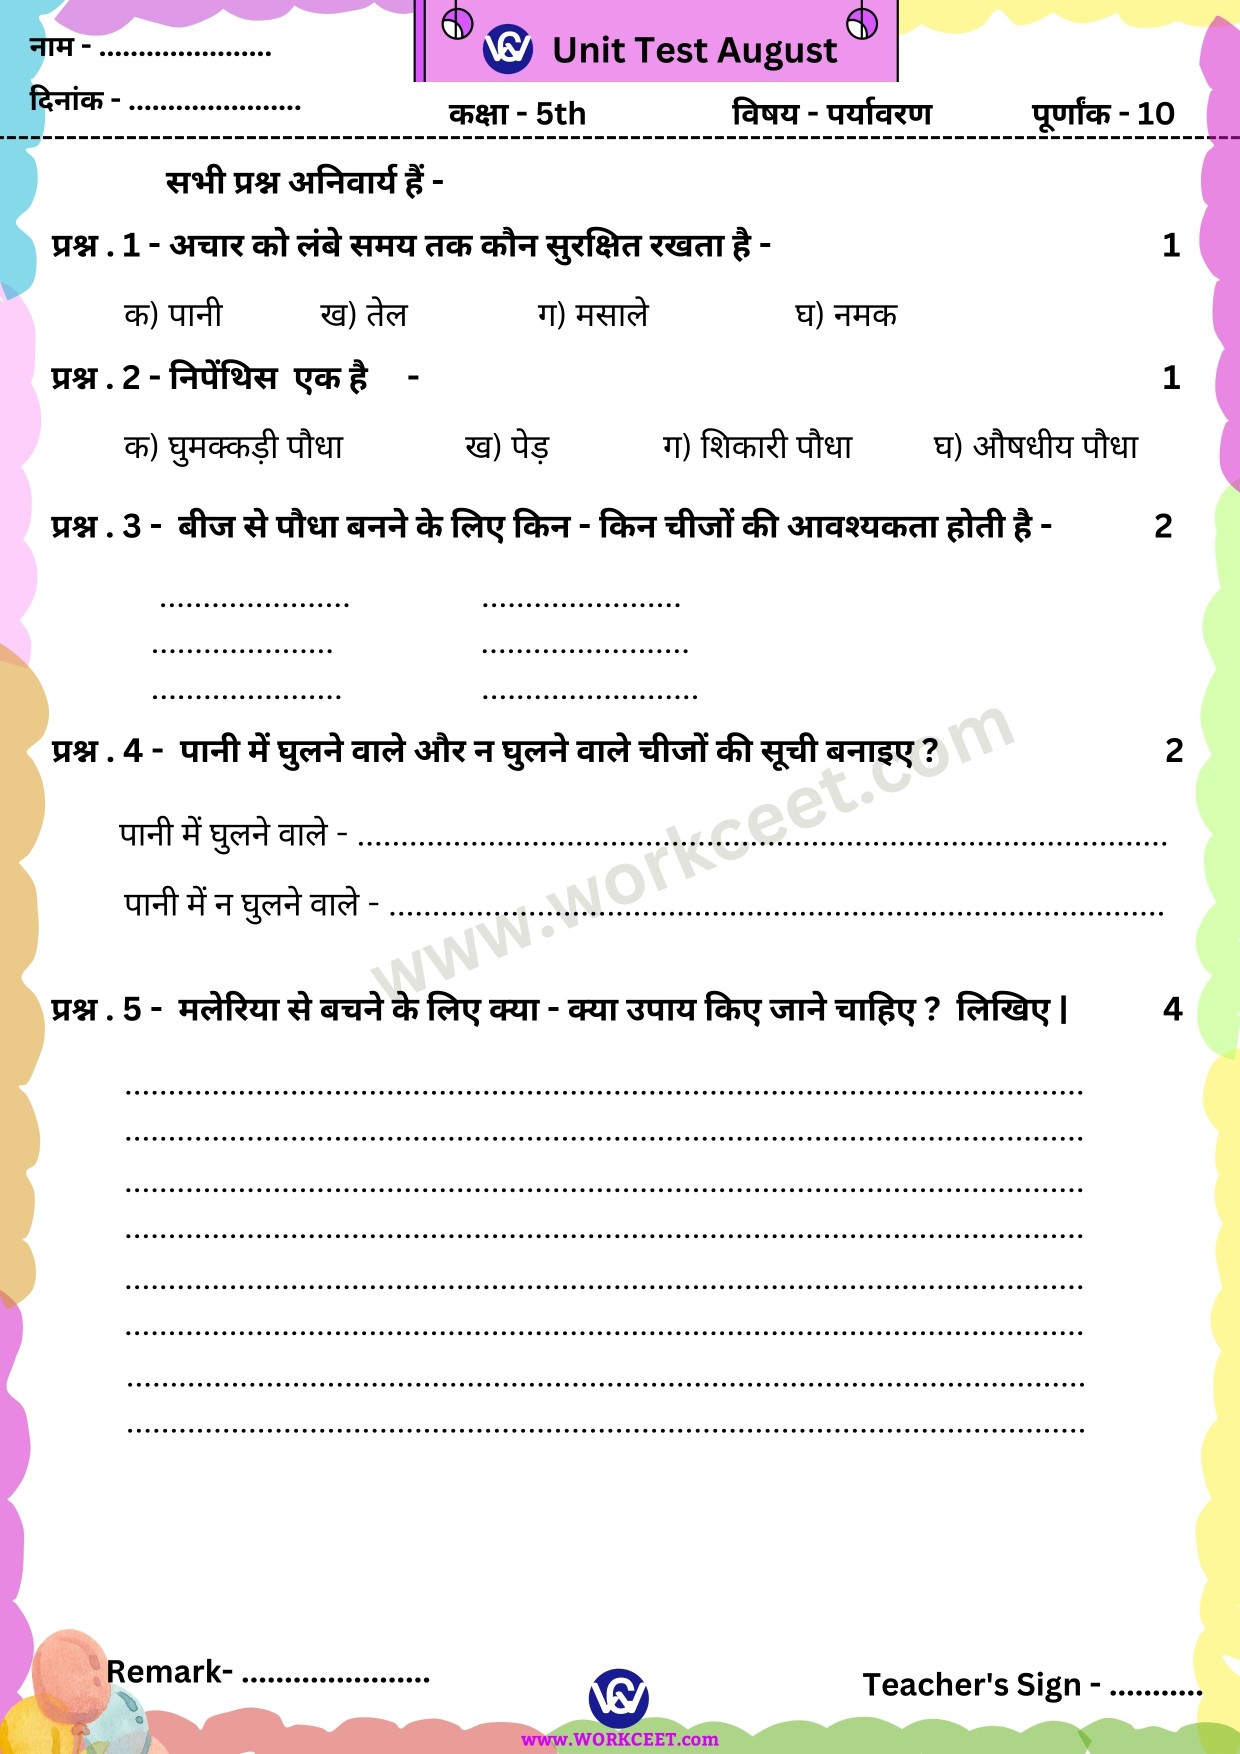 नाम - ......................
Unit Test August
दिनांक - ......................
कक्षा - 5th विषय - पर्यावरण पूर्णांक - 10
सभी प्रश्न अनिवार्य हैं -
प्रश्न . 1 - अचार को लंबे समय तक कौन सुरक्षित रखता है - 1
क) पानी ख) तेल ग) मसाले घ) नमक
प्रश्न . 2 - निपेंथिस एक है - 1
क) घुमक्कड़ी पौधा ख) पेड़ ग) शिकारी पौधा घ) औषधीय पौधा
प्रश्न . 3 - बीज से पौधा बनने के लिए किन - किन चीजों की आवश्यकता होती है - 2
...................... .......................
..................... ........................
...................... .........................
प्रश्न . 4 - पानी में घुलने वाले और न घुलने वाले चीजों की सूची बनाइए ? 2
पानी में घुलने वाले - ..............................................................................................
पानी में न घुलने वाले - ..........................................................................................
www.workceet.com
प्रश्न . 5 - मलेरिया से बचने के लिए क्या - क्या उपाय किए जाने चाहिए ? लिखिए | 4
...............................................................................................................
...............................................................................................................
...............................................................................................................
...............................................................................................................
...............................................................................................................
...............................................................................................................
...............................................................................................................
...............................................................................................................
Remark- ......................
Teacher's Sign - ...........
www.WORKCEET.com